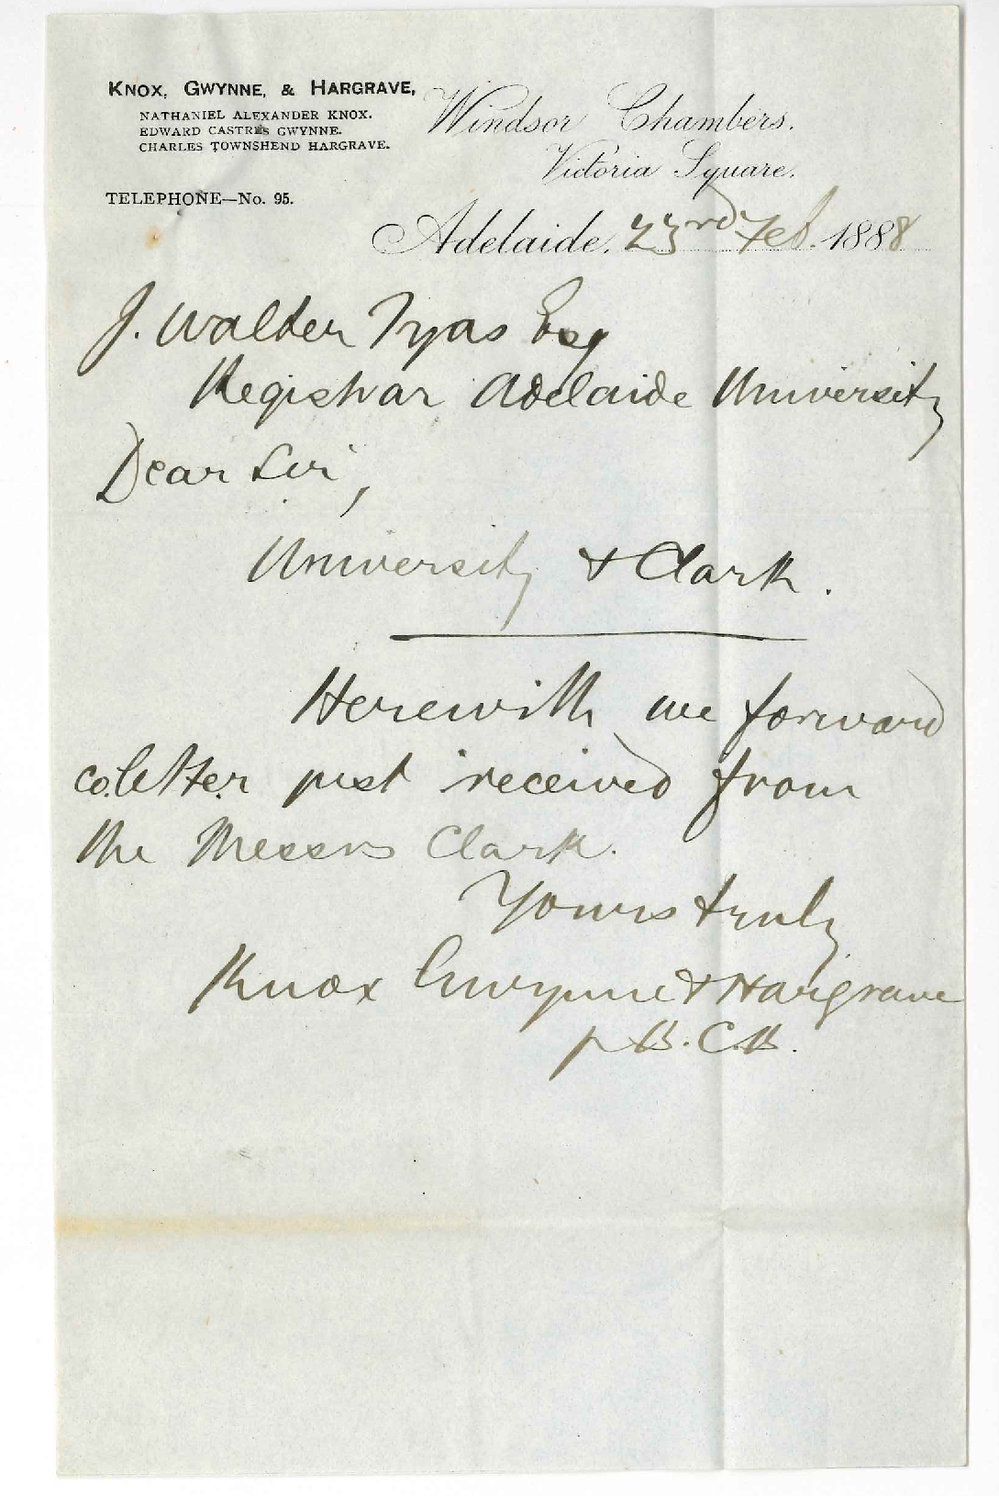 KNOX, GWYNNE, & HARGRAVE,
NATHANIEL ALEXANDER KNOX.
EDWARD CASTRES GWYNNE.
CHARLES TOWNSHEND HARGRAVE.
TELEPHONE—No. 95.
Windsor Chambers.
Victoria Square.
Adelaide, 23rd Feb. 1888
J. Walter Tyas Esq
Registrar Adelaide University
Dear Sir,
University & Clark.
Herewith we forward
co. letter just received from
the Messrs Clark.
Yours truly
Knox Gwynne & Hargrave
p B.C.B.